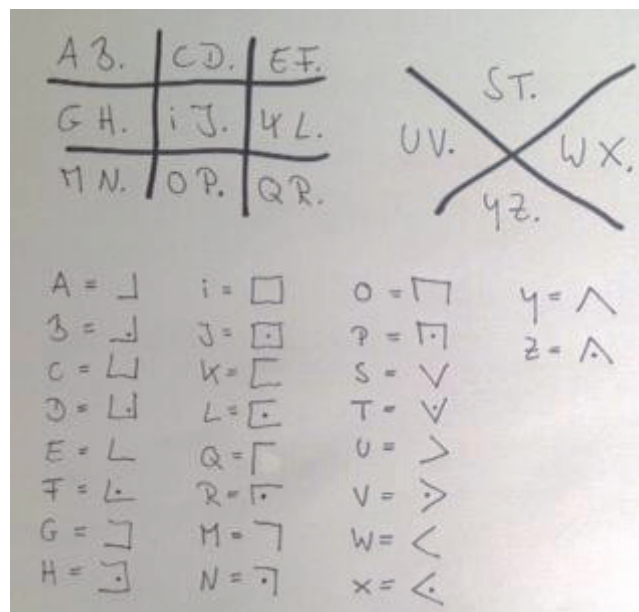 A B. CD. EF.
G H. i J. K L.
M N. O P. QR.
ST.
UV. W X.
YZ.
A =
B =
C =
D =
E =
F =
G =
H =
i =
J =
K =
L =
Q =
R =
M =
N =
O =
P =
S =
T =
U =
V =
W =
X =
Y =
Z =